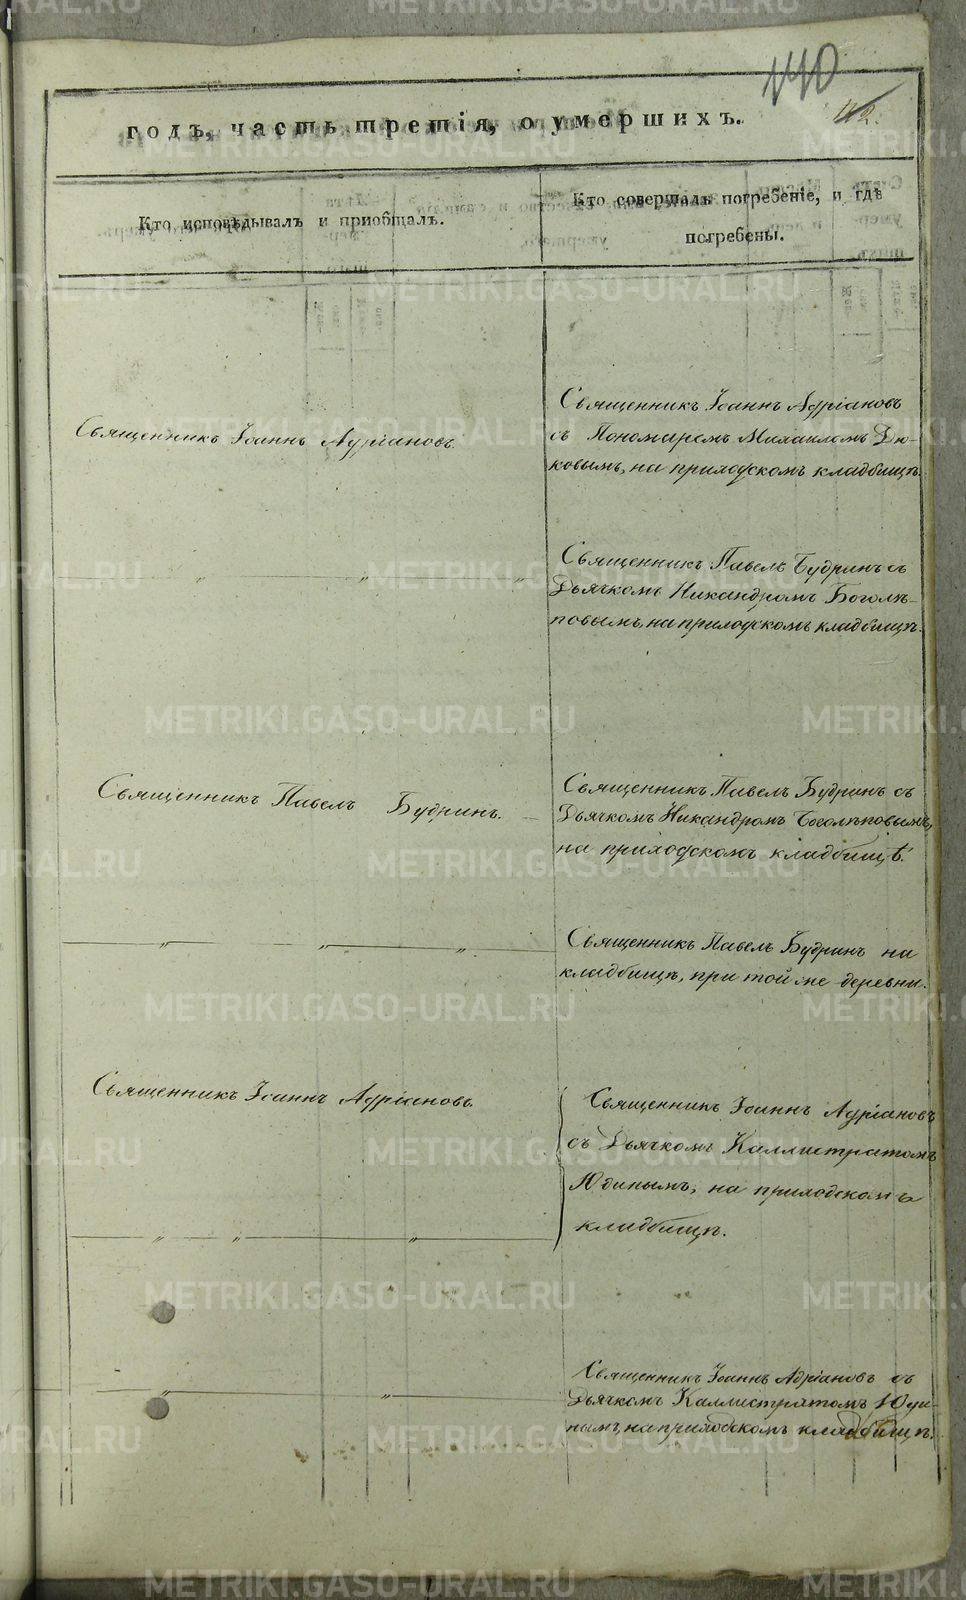 110
годъ, часть третія, о умершихъ.
Кто исповѣдывалъ и приобщалъ.
Кто совершалъ погребеніе, и гдѣ
погребены.
Священникъ Іоаннъ Адріановъ
Священникъ Іоаннъ Адріановъ
съ Пономаремъ Михаиломъ Дю-
ковымъ, на приходскомъ кладбищѣ.
Священникъ Павелъ Будринъ съ
Дьячкомъ Никандромъ Боголѣ-
повымъ, на приходскомъ кладбищѣ.
Священникъ Павелъ Будринъ.
Священникъ Павелъ Будринъ съ
Дьячкомъ Никандромъ Боголѣповымъ,
на приходскомъ кладбищѣ.
Священникъ Павелъ Будринъ на
кладбищѣ, при той же деревни.
Священникъ Іоаннъ Адріановъ.
Священникъ Іоаннъ Адріановъ
съ Дьячкомъ Каллистратомъ
Юдинымъ, на приходскомъ
кладбищѣ.
Священникъ Іоаннъ Адріановъ съ
Дьячкомъ Каллистратомъ Юди-
нымъ, на приходскомъ кладбищѣ.
METRIKI.GASO-URAL.RU